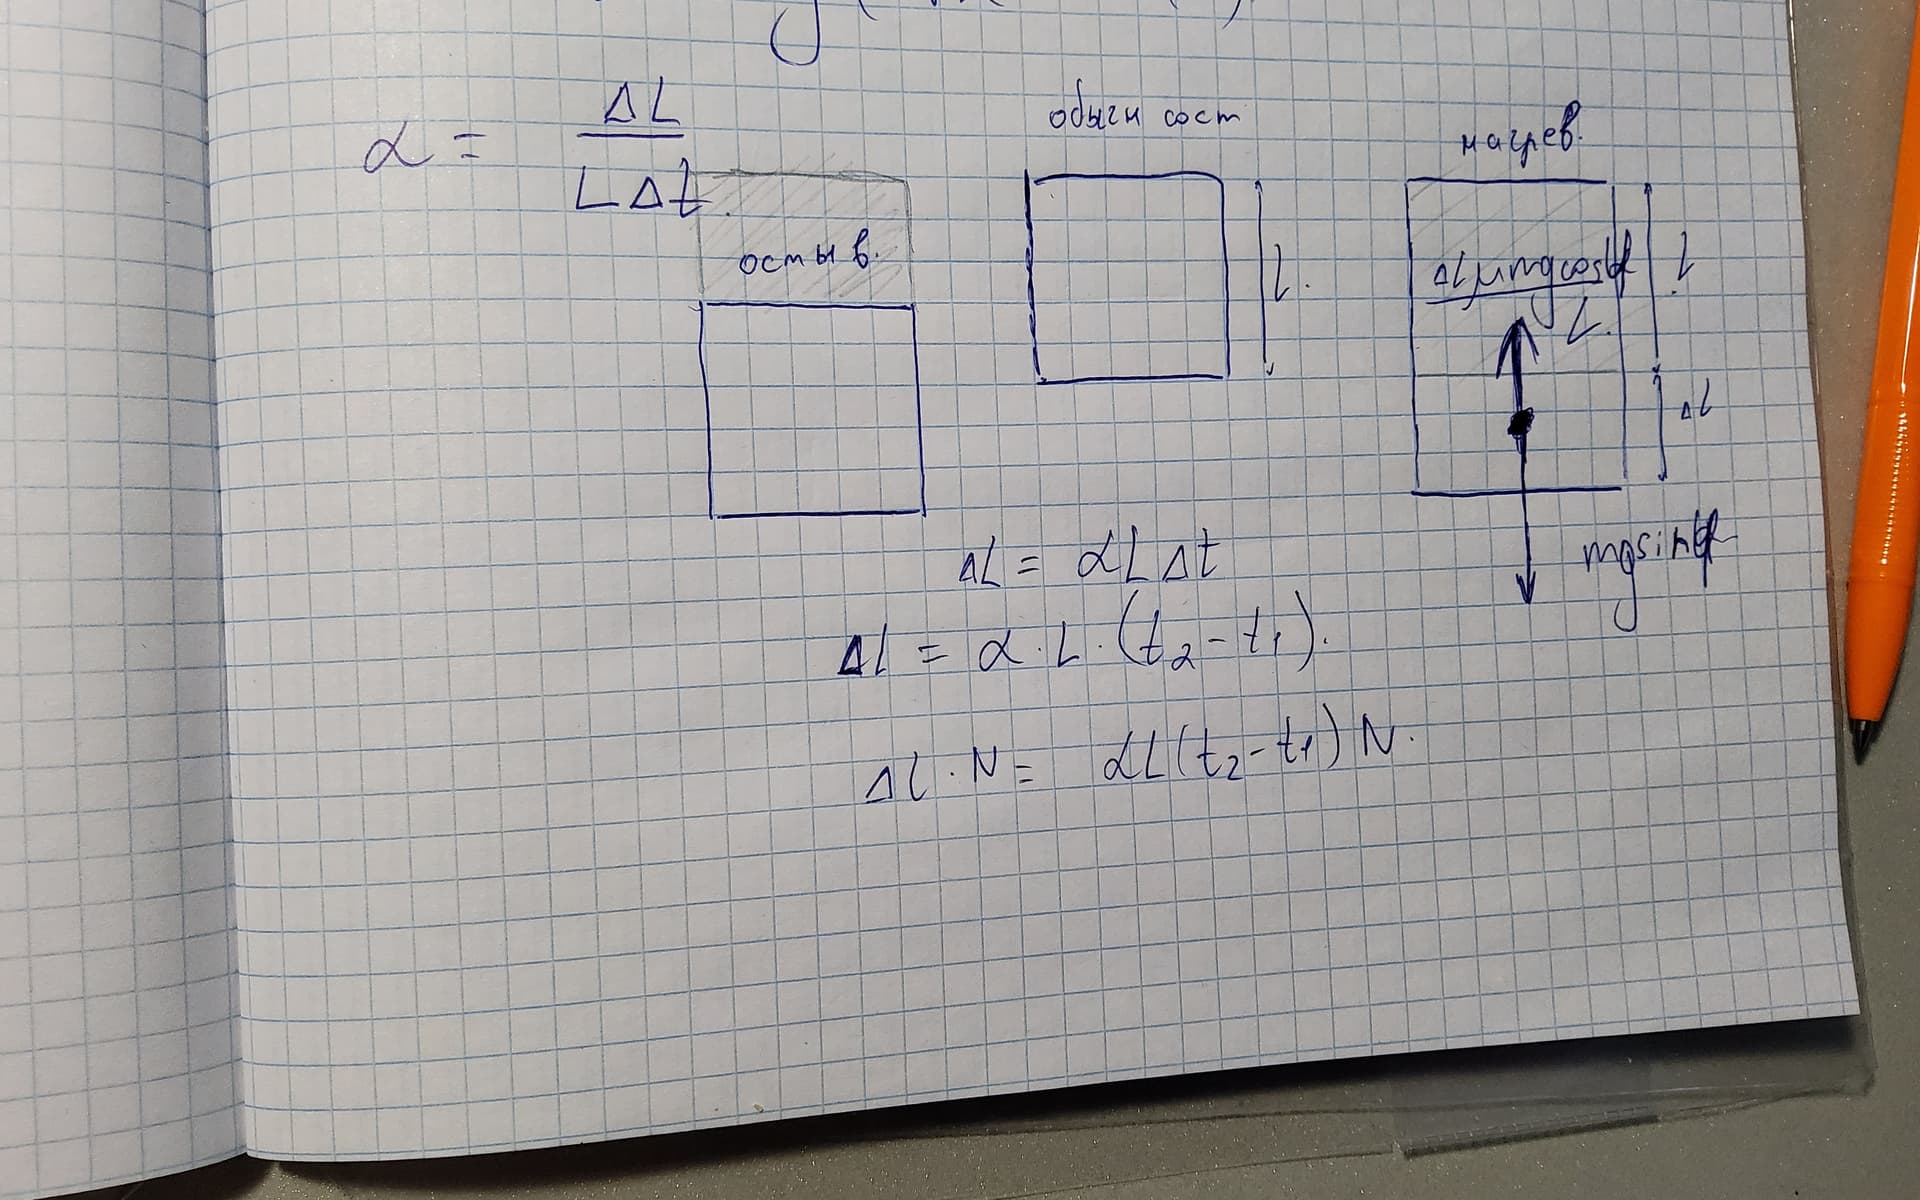 α = ΔL / LΔt.
обычн сост
нагрев.
остыв.
L.
ΔLμmgcosφ / L.
L
ΔL
mgsinφ
ΔL = αLΔt
Δl = α · L · (t₂ - t₁).
Δl · N = αL(t₂ - t₁)N.